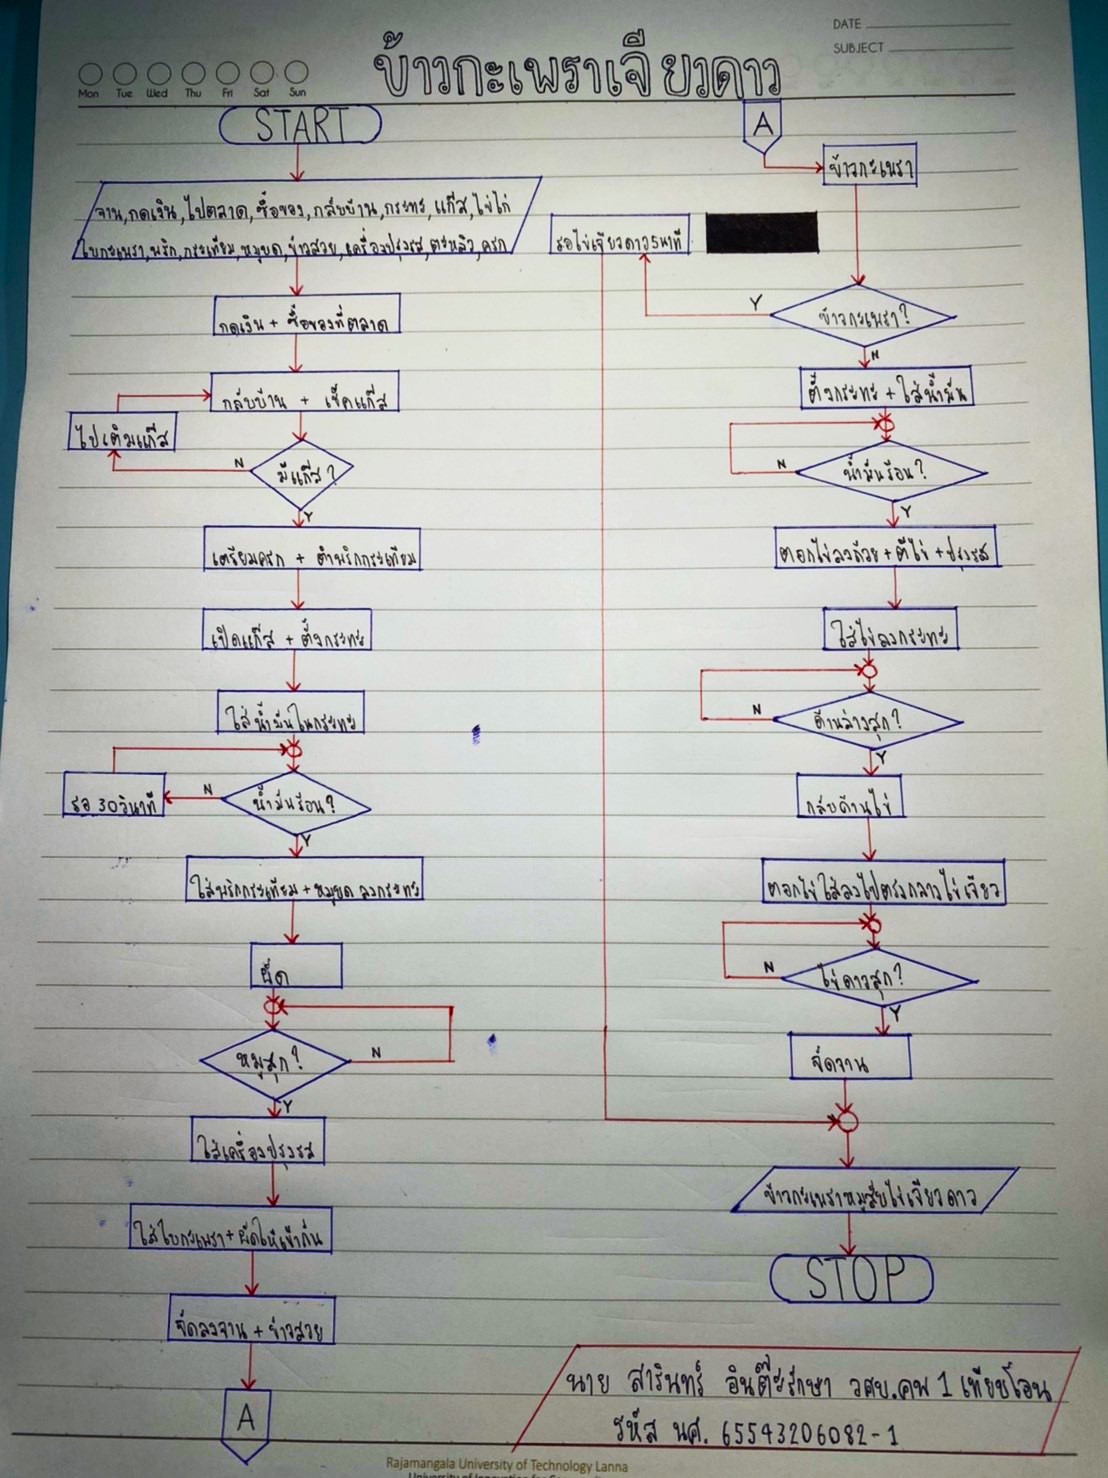 DATE
SUBJECT
ข้าวกะเพราเจียวดาว
Mon Tue Wed Thu Fri Sat Sun
START
จาน,กดเงิน,ไปตลาด,ซื้อของ,กลับบ้าน,กระทะ,แก๊ส,ไข่ไก่
ใบกะเพรา,พริก,กระเทียม,หมูบด,ข้าวสวย,เครื่องปรุงรส,ตะหลิว,ครก
กดเงิน + ซื้อของที่ตลาด
กลับบ้าน + เช็คแก๊ส
ไปเติมแก๊ส
N
มีแก๊ส?
Y
เตรียมครก + ตำพริกกระเทียม
เปิดแก๊ส + ตั้งกระทะ
ใส่น้ำมันในกระทะ
รอ 30 วินาที
N
น้ำมันร้อน?
Y
ใส่พริกกระเทียม + หมูบด ลงกระทะ
ผัด
หมูสุก?
N
Y
ใส่เครื่องปรุงรส
ใส่ใบกะเพรา + ผัดให้เข้ากัน
จัดลงจาน + ข้าวสวย
A
A
ข้าวกะเพรา
รอไข่เจียวดาว 5 นาที
Y
ข้าวกะเพรา?
N
ตั้งกระทะ + ใส่น้ำมัน
N
น้ำมันร้อน?
Y
ตอกไข่ลงถ้วย + ตีไข่ + ปรุงรส
ใส่ไข่ลงกระทะ
N
ด้านล่างสุก?
Y
กลับด้านไข่
ตอกไข่ใส่ลงไปตรงกลางไข่เจียว
N
ไข่ดาวสุก?
Y
จัดจาน
ข้าวกะเพราหมูสับไข่เจียวดาว
STOP
นาย สารินทร์ อินต๊ะรักษา วศบ.คพ 1 เทียบโอน
รหัส นศ. 65543206082-1
Rajamangala University of Technology Lanna